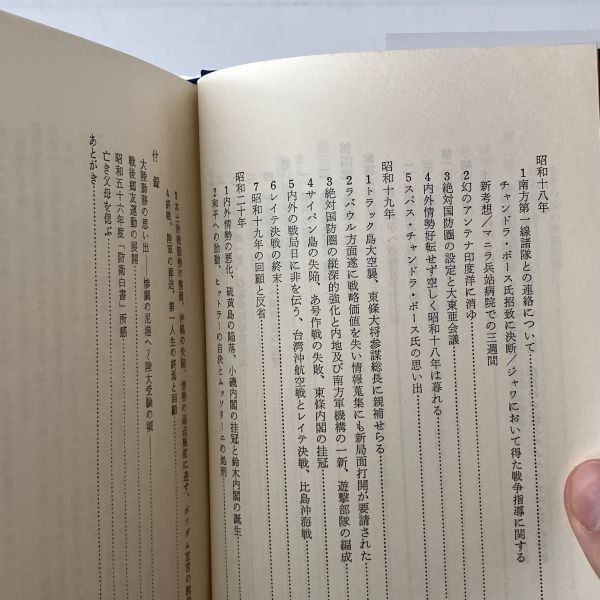 昭和十八年
1南方第一線諸隊との連絡について
チャンドラ・ボース氏招致に決断/ジャワにおいて得た戦争指導に関する
新考想/マニラ兵站病院での三週間
2幻のアンテナ印度洋に消ゆ
3絶対国防圏の設定と大東亜会議
4内外情勢好転せず空しく昭和十八年は暮れる
5スバス・チャンドラ・ボース氏の思い出
昭和十九年
1トラック島大空襲、東條大将参謀総長に親補せらる
2ラバウル方面遂に戦略価値を失い情報蒐集にも新局面打開が要請された
3絶対国防圏の縦深的強化と内地及び南方軍機構の一新、遊撃部隊の編成
4サイパン島の失陥、あ号作戦の失敗、東條内閣の挂冠
5内外の戦局日に非を伝う、台湾沖航空戦とレイテ決戦、比島沖海戦
6レイテ決戦の終末
7昭和十九年の回顧と反省
昭和二十年
1内外情勢の悪化、硫黄島の陥落、小磯内閣の挂冠と鈴木内閣の誕生
2和平への胎動、ヒットラーの自決とムッソリーニの処刑
4終戦、陸軍の葬送、第一人生の終焉と回顧
付録
大陸勤務の思い出
戦後郷友運動の展開
昭和五十六年度「防衛白書」所感
亡き父母を偲ぶ
あとがき